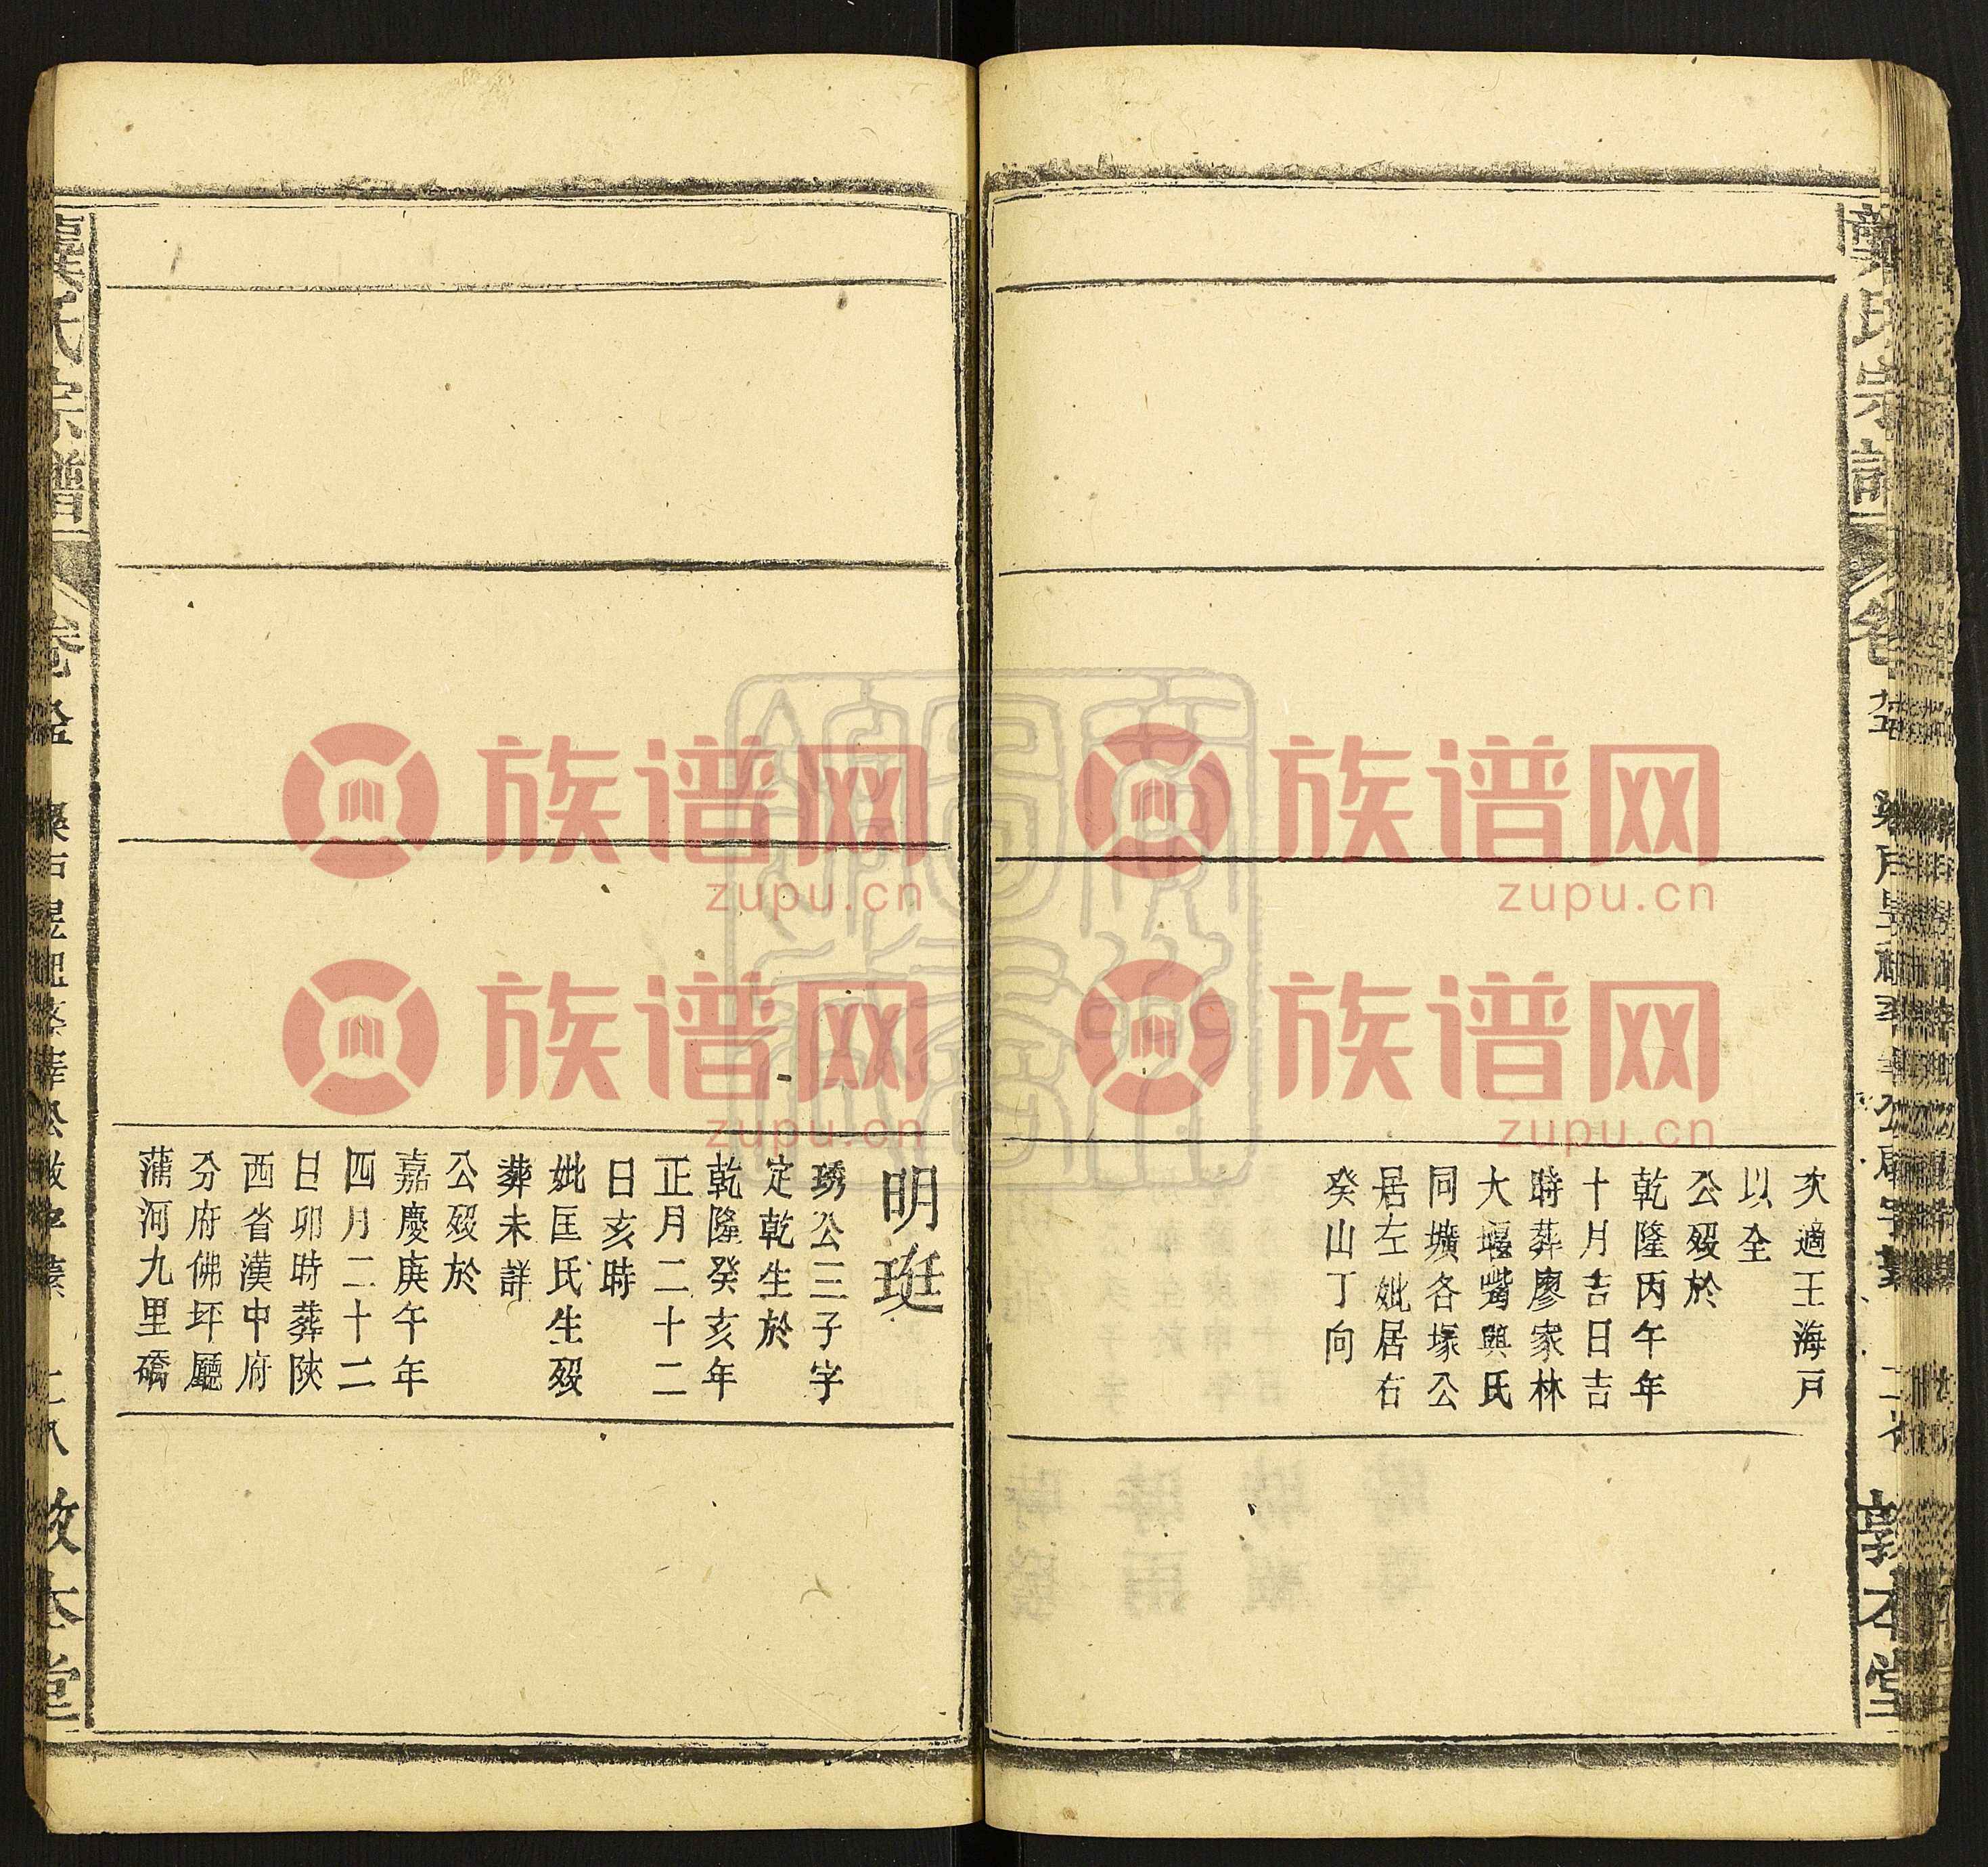 次適王海戸
以全
公殁於
乾隆丙午年
十月吉日吉
時葬廖家林
大堰嘴與氏
同壙各塚公
居左妣居右
癸山丁向
敦本堂
明珽
琇公三子字
定乾生於
乾隆癸亥年
正月二十二
日亥時
妣匡氏生殁
葬未詳
公殁於
嘉慶庚午年
四月二十二
日卯時葬陝
西省漢中府
分府佛坪廳
蒲河九里礄
氏宗譜
卷
族谱网
zupu.cn
族谱网
zupu.cn
族谱网
zupu.cn
族谱网
zupu.cn